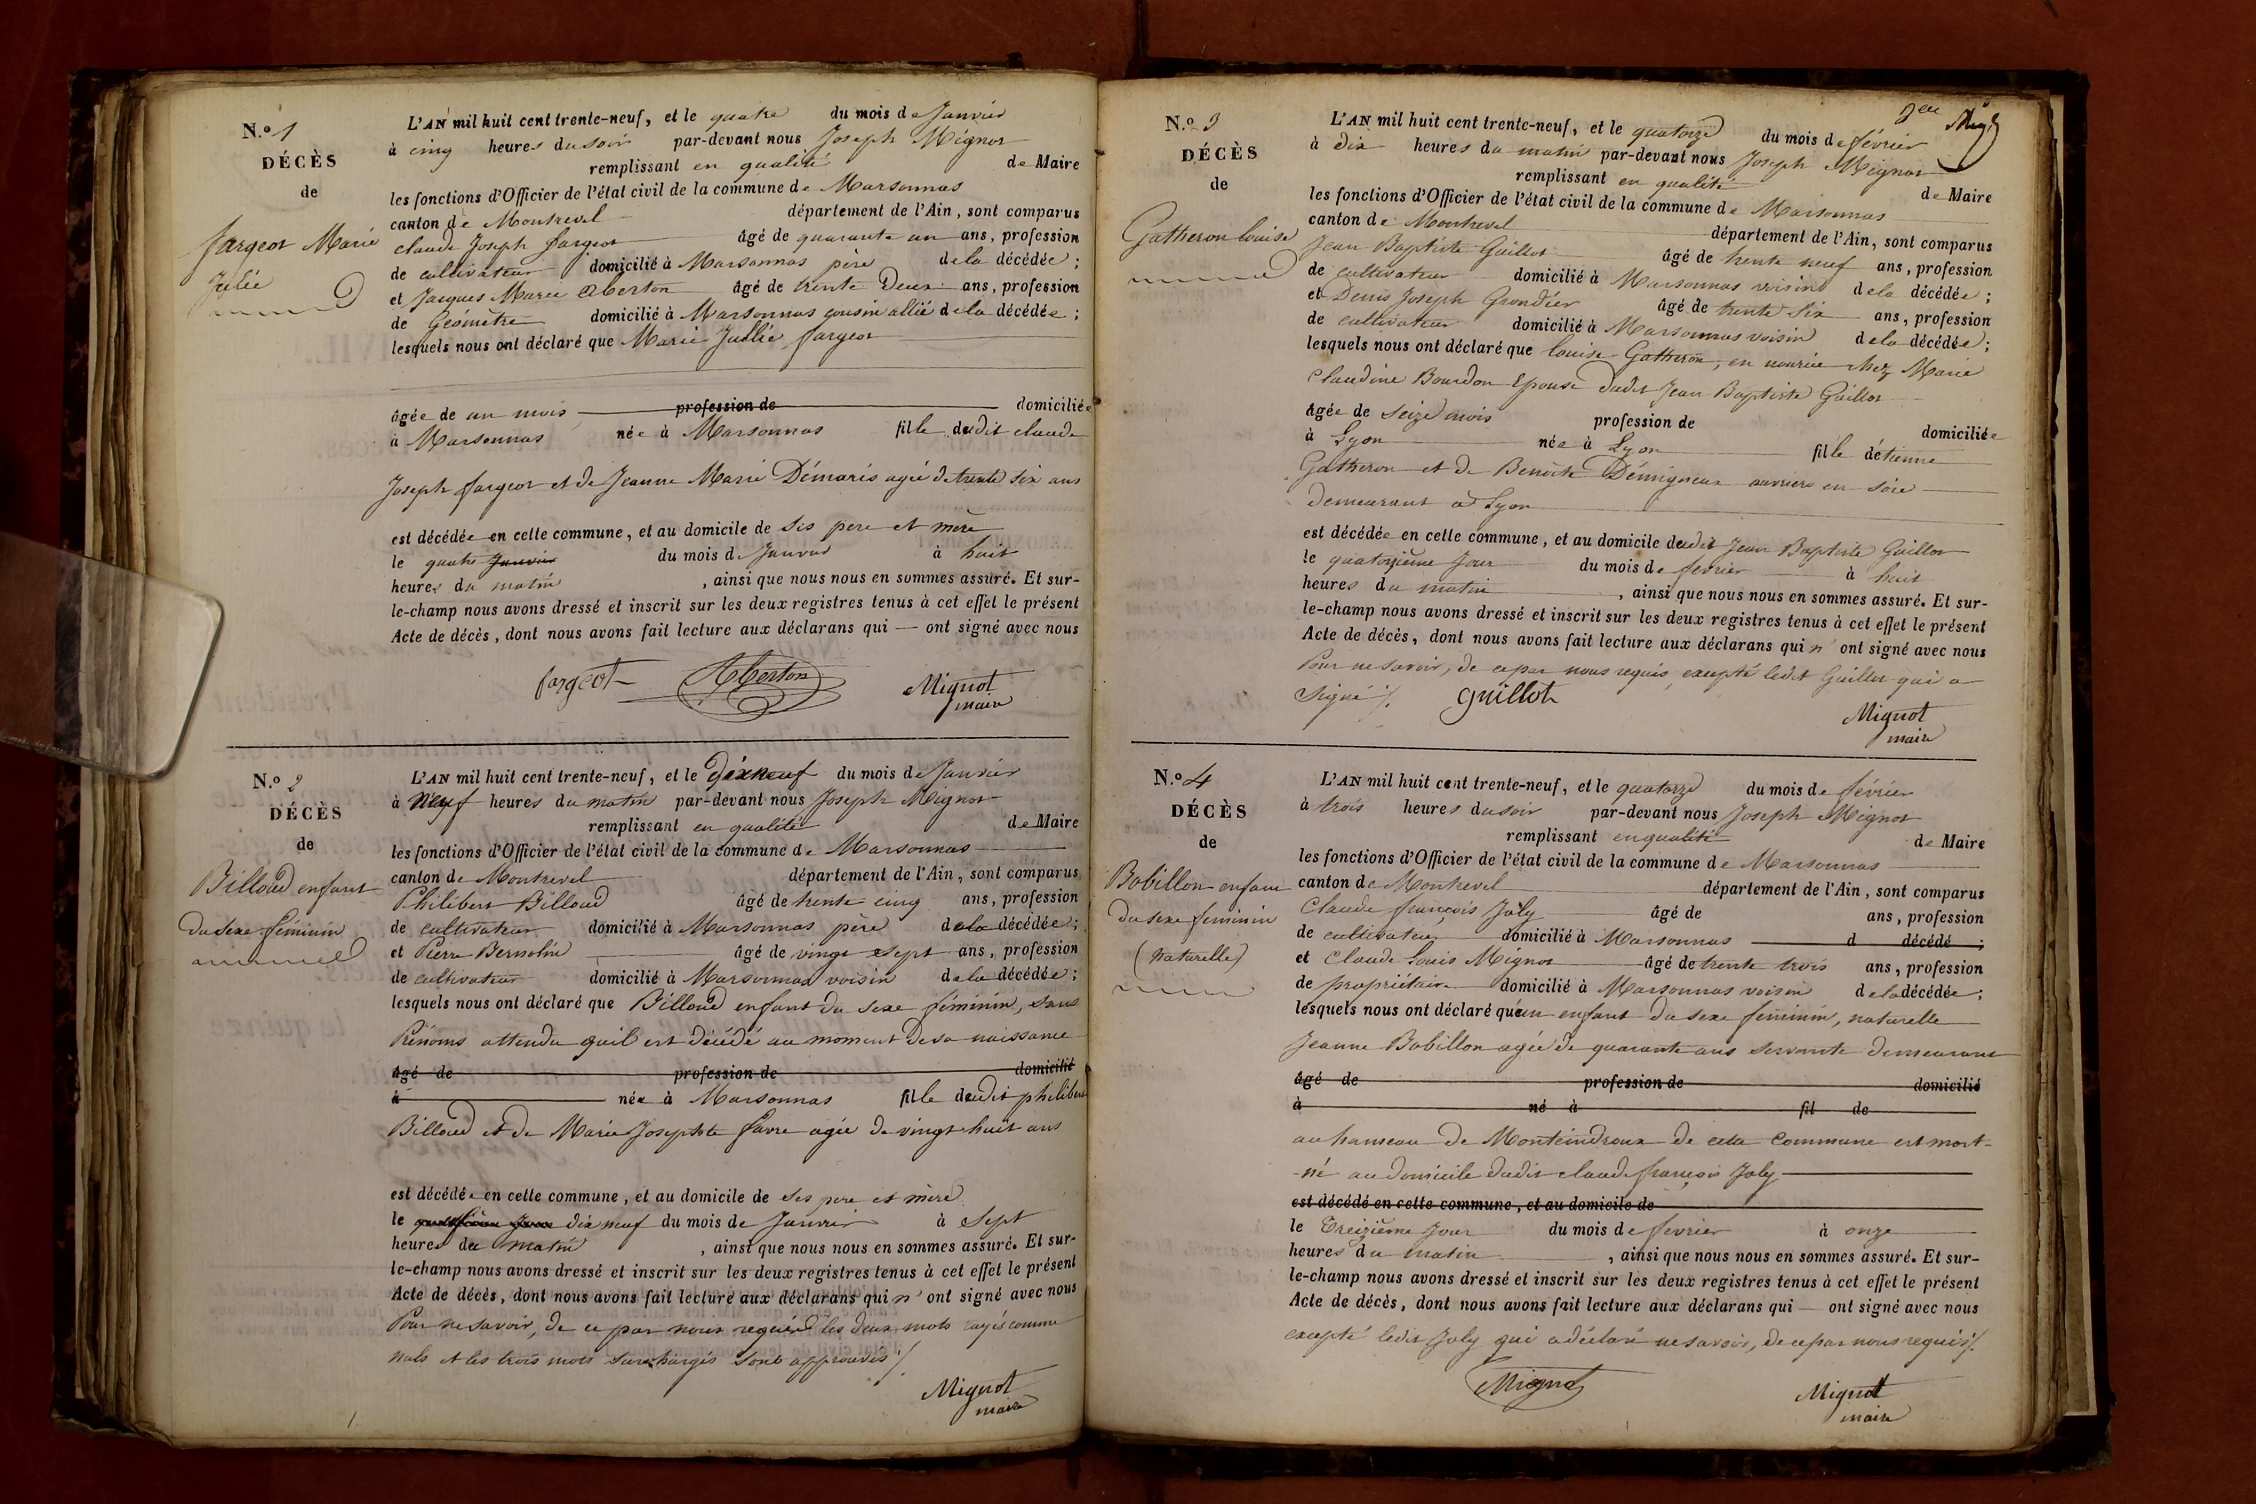 N.º 1
DÉCÈS
de
fargeot Marie
Julie
L'AN mil huit cent trente-neuf, et le quatre du mois de Janvier
à cinq heures du soir par-devant nous Joseph Mignot
remplissant en qualité de Maire
les fonctions d'Officier de l'état civil de la commune de Marsonnas
canton de Montrevel département de l'Ain, sont comparus
claude Joseph fargeot âgé de quarante un ans, profession
de cultivateur domicilié à Marsonnas père de la décédée ;
et Jacques Marie Aberton âgé de trente Deux ans, profession
de Géomètre domicilié à Marsonnas cousin allié de la décédée ;
lesquels nous ont déclaré que Marie Jullie fargeot
âgée de un mois profession de domiciliée
à Marsonnas née à Marsonnas fille dudit claude
Joseph fargeot et de Jeanne Marie Démaris agée de trente six ans
est décédée en cette commune, et au domicile de ses père et mère
le quatre Janvier du mois de Janvier à huit
heures du matin , ainsi que nous nous en sommes assuré. Et sur-
le-champ nous avons dressé et inscrit sur les deux registres tenus à cet effet le présent
Acte de décès, dont nous avons fait lecture aux déclarans qui — ont signé avec nous
fargeot Aberton Mignot
maire
N.º 2
DÉCÈS
de
Billoud enfant
du sexe féminin
L'AN mil huit cent trente-neuf, et le Dixneuf du mois de Janvier
à Neuf heures du matin par-devant nous Joseph Mignot
remplissant en qualité de Maire
les fonctions d'Officier de l'état civil de la commune de Marsonnas
canton de Montrevel département de l'Ain, sont comparus
Philibert Billoud âgé de trente cinq ans, profession
de cultivateur domicilié à Marsonnas père de la décédée ;
et Pierre Bernolin âgé de vingt sept ans, profession
de cultivateur domicilié à Marsonnas voisin de la décédée ;
lesquels nous ont déclaré que Billoud enfant du sexe féminin, sans
Prénoms attendu qu'il est décédé au moment de sa naissance
âgé de profession de domicilié
à née à Marsonnas fille dudit philibert
Billoud et de Marie Josephte favre agée de vingt huit ans
est décédée en cette commune, et au domicile de ses père et mère
le dix neuf du mois de Janvier à sept
heures du matin , ainsi que nous nous en sommes assuré. Et sur-
le-champ nous avons dressé et inscrit sur les deux registres tenus à cet effet le présent
Acte de décès, dont nous avons fait lecture aux déclarans qui n'ont signé avec nous
Pour ne savoir, de ce par nous requis les deux mots rayés comme
nuls et les trois mots surchargés sont approuvés ./.
Mignot
maire
N.º 3
DÉCÈS
de
Gatheron Louise
L'AN mil huit cent trente-neuf, et le quatorze du mois de février
à dix heures du matin par-devant nous Joseph Mignot
remplissant en qualité de Maire
les fonctions d'Officier de l'état civil de la commune de Marsonnas
canton de Montrevel département de l'Ain, sont comparus
Jean Baptiste Guillot âgé de trente neuf ans, profession
de cultivateur domicilié à Marsonnas voisin de la décédée ;
et Denis Joseph Grondier âgé de trente six ans, profession
de cultivateur domicilié à Marsonnas voisin de la décédée ;
lesquels nous ont déclaré que Louise Gatheron, en nourrice chez Marie
Claudine Bourdon Epouse dudit Jean Baptiste Guillot
âgée de seize mois profession de domiciliée
à Lyon née à Lyon fille détienne
Gatheron et de Benoîte Démigneux ouvriers en soie
demeurant à Lyon
est décédée en cette commune, et au domicile dudit Jean Baptiste Guillot
le quatorzième Jour du mois de fevrier à huit
heures du matin , ainsi que nous nous en sommes assuré. Et sur-
le-champ nous avons dressé et inscrit sur les deux registres tenus à cet effet le présent
Acte de décès, dont nous avons fait lecture aux déclarans qui n'ont signé avec nous
Pour ne savoir, de ce par nous requis, excepté ledit Guillot qui a
signé ./. Guillot
Mignot
maire
N.º 4
DÉCÈS
de
Bobillon enfant
du sexe feminin
(naturelle)
L'AN mil huit cent trente-neuf, et le quatorze du mois de février
à trois heures du soir par-devant nous Joseph Mignot
remplissant en qualité de Maire
les fonctions d'Officier de l'état civil de la commune de Marsonnas
canton de Montrevel département de l'Ain, sont comparus
Claude françois Joly âgé de ans, profession
de cultivateur domicilié à Marsonnas d décédé ;
et Claude Louis Mignot âgé de trente trois ans, profession
de propriétaire domicilié à Marsonnas voisin de la décédée ;
lesquels nous ont déclaré qu'un enfant du sexe féminin, naturelle
Jeanne Bobillon agée de quarante ans servante demeurant
âgé de profession de domicilié
à né à fil de
au hameau de Monteindroux de cette Commune est mort-
-né au domicile dudit claude françois Joly
est décédé en cette commune, et au domicile de
le Treizième Jour du mois de fevrier à onze
heures du matin , ainsi que nous nous en sommes assuré. Et sur-
le-champ nous avons dressé et inscrit sur les deux registres tenus à cet effet le présent
Acte de décès, dont nous avons fait lecture aux déclarans qui — ont signé avec nous
excepté ledit Joly qui a déclaré ne savoir, de ce par nous requis ./.
Mignot Mignot
maire